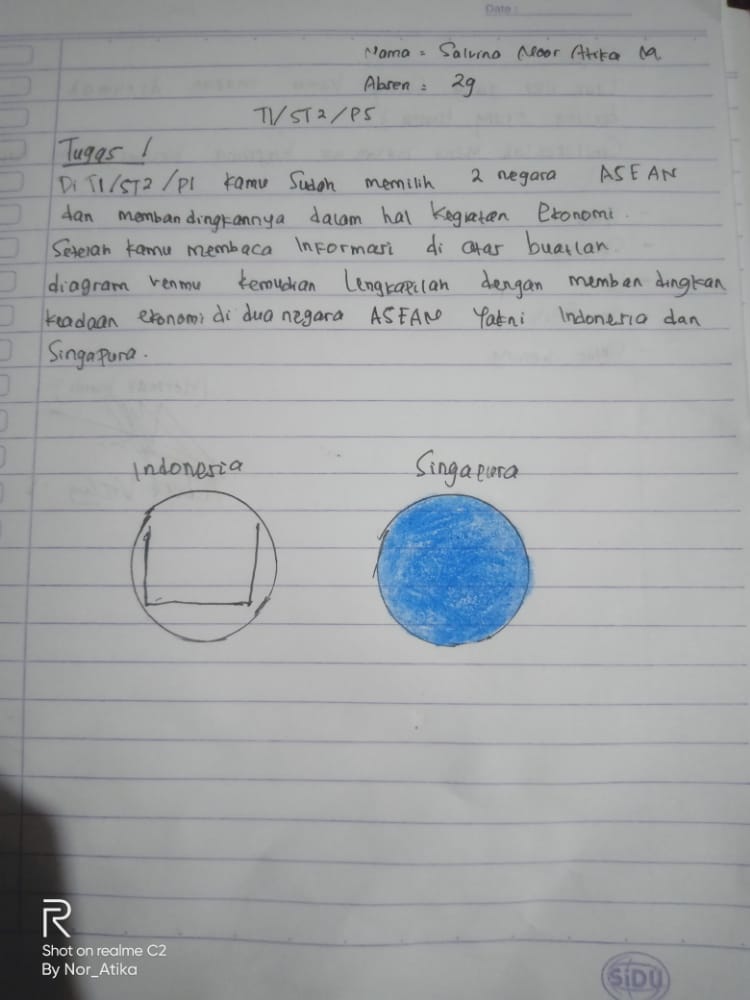 Date :
Nama = Salvina Noor Atika M
Absen : 29
T1/ST2/P5
Tugas !
Di T1/ST2/P1 kamu Sudah memilih 2 negara ASEAN
dan membandingkannya dalam hal kegiatan Ekonomi.
Setelah kamu membaca Informasi di atas buatlah
diagram venmu kemudian Lengkapilah dengan membandingkan
keadaan ekonomi di dua negara ASEAN Yakni Indonesia dan
Singapura.
Indonesia
Singapura
R
Shot on realme C2
By Nor_Atika
SiDU